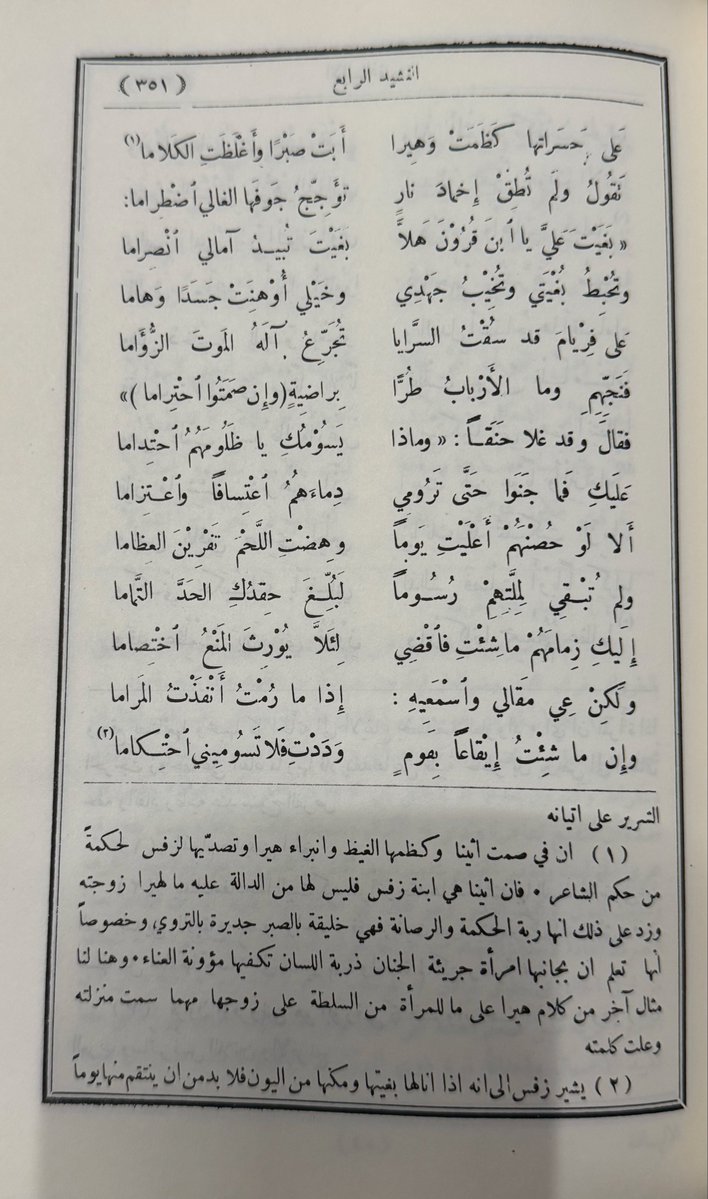 النشيد الرابع (٣٥١)
عَلَى حَسَرَاتِها كَظَمَتْ وَهِيرا أَبَتْ صَبْرًا وأَغْلَظَتِ الكَلاما (١)
تَقُولُ ولَم تُطِقْ إِخمادَ نارٍ تُؤَجِّجُ جَوفَها الغالي ٱضْطِراما:
« بَغَيْتَ عَلَيَّ يا ٱبنَ قُرُوْنَ هَلاَّ بَغَيْتَ تُبِيدُ آمالي ٱنْصِراما
وتُحْبِطُ بُغْيَتِي وتُخَيِّبُ جَهْدِي وخَيْلي أُوْهِنَتْ جَسَدًا وَهاما
عَلى فِرْيامَ قد سُقْتُ السَّرايا تُجَرِّعُ آلَهُ المَوتَ الزُّؤَاما
فَنَجِّهِمِ وما الأَرْبابُ طُرًّا بِراضِيةٍ (وإِن صَمَتُوا ٱحْتِراما) »
فقالَ وقد غلا حَنَقـاً : « وماذا يَسُوْمُكِ يا ظَلُومَهُمُ ٱحْتِداما
عَلَيكِ فَما جَنَوا حَتَّى تَرُومِي دِماءَهمُ ٱعْتِسافًا وٱعْـتِزاما
أَلا لَوْ حُصْنَهُمْ أَعْلَيْتِ يَوماً وهِضْتِ اللَّحْمَ تَفْرِيْنَ العِظاما
ولم تُبْـقِي لِمِلَّتِهِمْ رُسُـوماً لَبُلِّـغَ حِقدُكِ الحَدَّ التَّماما
إِليكِ زِمامَهُمْ ما شئْتِ فٱقْضِي لِئَلاَّ يُوْرِثَ المَنْعُ ٱخْتِصاما
ولكِنْ عِي مَقَالي وٱسْمَعِيهِ : إِذا ما رُمْتُ أَنْفَذْتُ المَراما
وإِن ما شِئْتُ إِيْقاعاً بِقَومٍ وَدَدْتِ فَلا تَسُومِيني ٱحْتِـكاما (٢)
السرير على اتيانه
(١) ان في صمت اثينا وكظمها الغيظ وانبراء هيرا وتصدّيها لزفس لحكمةً
من حكم الشاعر ٠ فان اثينا هي ابنة زفس فليس لها من الدالة عليه ما لهيرا زوجته
وزد على ذلك انها ربة الحكمة والرصانة فهي خليقة بالصبر جديرة بالتروي ، وخصوصاً
أنها تعلم ان بجانبها امرأة جريئة الجنان ذربة اللسان تكفيها مؤونة العناء ٠ وهنا لنا
مثال آخر من كلام هيرا على ما للمرأة من السلطة على زوجها مهما سمت منزلته
وعلت كلمته
(٢) يشير زفس الى انه اذا انالها بغيتها ومكنها من اليون فلا بد من ان ينتقم منها يوماً